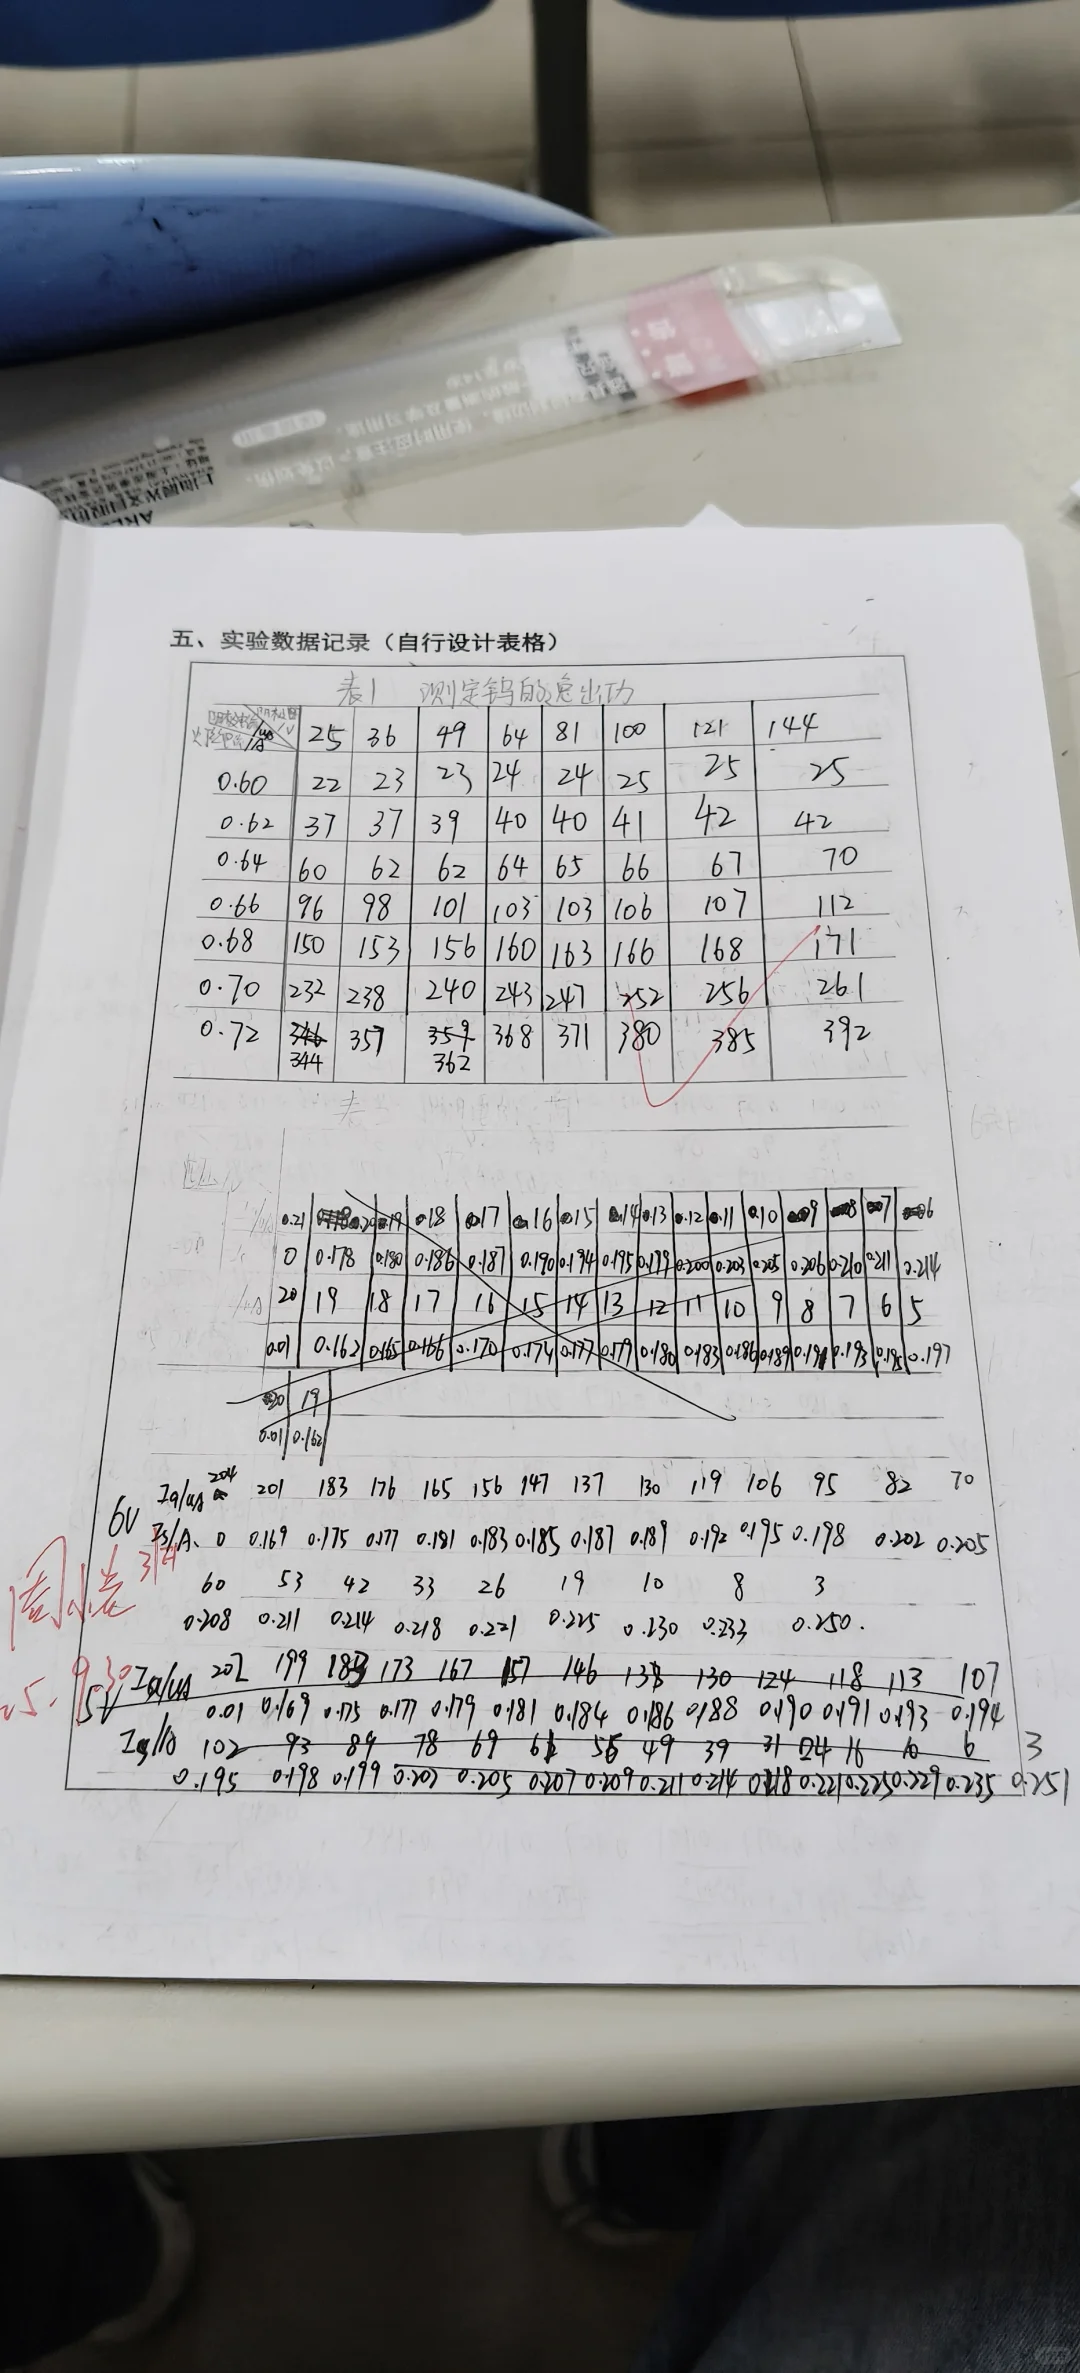 使用时应注意，以免划伤。
五、实验数据记录（自行设计表格）
表1 测定钨的逸出功
25 36 49 64 81 100 121 144
0.60 22 23 23 24 24 25 25 25
0.62 37 37 39 40 40 41 42 42
0.64 60 62 62 64 65 66 67 70
0.66 96 98 101 103 103 106 107 112
0.68 150 153 156 160 163 166 168 171
0.70 232 238 240 243 247 252 256 261
0.72 346 357 359 368 371 380 385 392
344 362
表
0.21 0.20 0.19 0.18 0.17 0.16 0.15 0.14 0.13 0.12 0.11 0.10
0 0.178 0.180 0.186 0.187 0.190 0.194 0.195 0.199 0.200 0.203 0.205 0.206 0.210 0.211 0.214
20 19 18 17 16 15 14 13 12 11 10 9 8 7 6 5
0.01 0.162 0.165 0.166 0.170 0.174 0.177 0.179 0.180 0.183 0.186 0.189 0.191 0.193 0.195 0.197
20 19
0.01 0.162
6V Ia/uA 204 201 183 176 165 156 147 137 130 119 106 95 82 70
Is/A 0 0.169 0.175 0.177 0.181 0.183 0.185 0.187 0.189 0.192 0.195 0.198 0.202 0.205
60 53 42 33 26 19 10 8 3
0.208 0.211 0.214 0.218 0.221 0.225 0.230 0.233 0.250.
5V Ia/uA 202 199 183 173 167 157 146 138 130 124 118 113 107
0.01 0.169 0.175 0.177 0.179 0.181 0.184 0.186 0.188 0.190 0.191 0.193 0.194
102 93 89 78 69 61 56 49 39 31 24 16 10 6 3
0.195 0.198 0.199 0.202 0.205 0.207 0.209 0.211 0.214 0.218 0.221 0.225 0.229 0.235 0.251
25.9.30